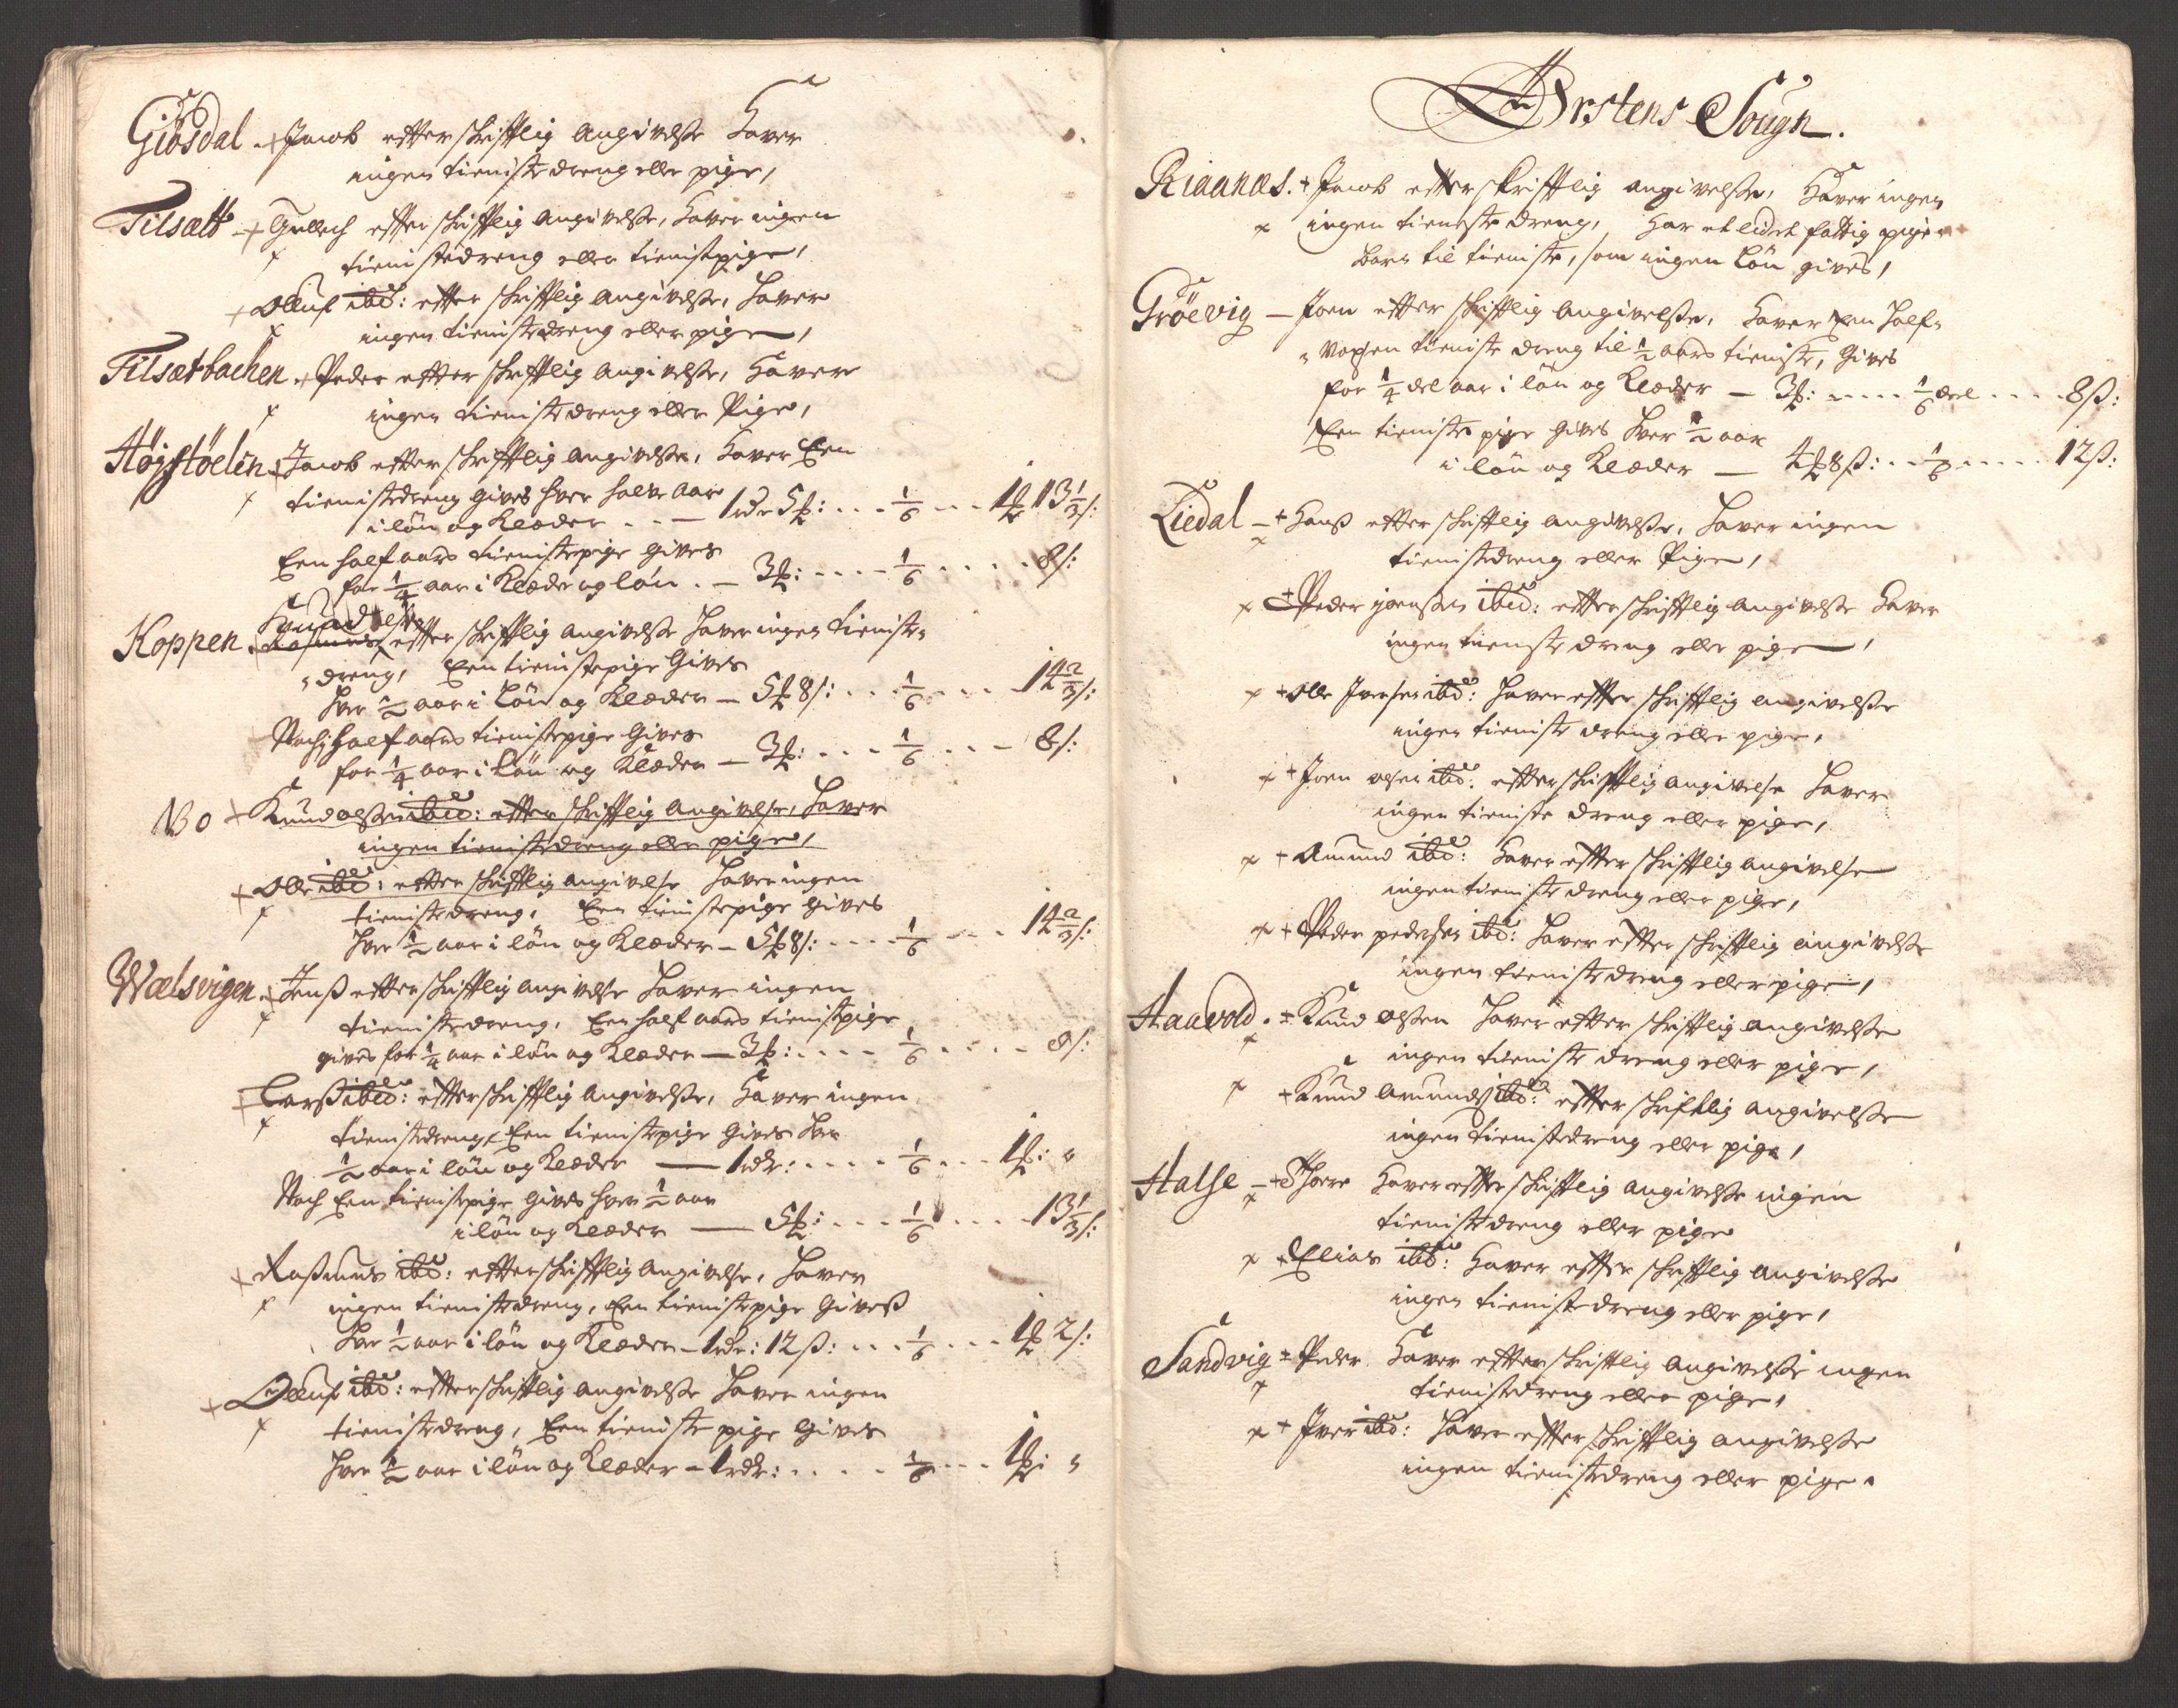 Giösdal + Jacob effter skrifftlig angivelse haver
ingen tienistedreng eller pige,
Tilsætt + Gullich effter skrifftlig angivelse, haver ingen
tienistedreng eller tienistpige,
+ Olluf ibid: effter skrifftlig angivelse, haver
ingen tienistedreng eller pige,
Tilsætbachen + Peder effter skrifftlig angivelse, haver
ingen tienistedreng eller Pige,
Höjstöelen + Jacob effter skrifftlig angivelse, haver Een
tienistedreng gives hver halve aar
i lön og Klæder . . — 1 rdr 5 ℔: . . . 1/6 . . . 1 ℔ 13 1/3 s:
Een half aars tienistepige gives
for 1/4 aar i Klæder og lön . — 3 ℔: . . . . 1/6 . . . . 8 s:
Knud olsen
Koppen + Rasmus effter skrifftlig angivelse haver ingen tieniste-
dreng, Een tienistepige Gives
hver 1/2 aar i Lön og Klæder — 5 ℔ 8 s: . . . 1/6 . . . 14 2/3 s:
Noch half aars tienistepige Gives
for 1/4 aar i Lön og Klæder — 3 ℔: . . . 1/6 . . . 8 s:
NB o + Knud olsen ibid: effter skrifftlig angivelse, haver
ingen tienistedreng eller pige,
+ Olle ibid: effter skrifftlig angivelse haver ingen
tienistedreng, Een tienistepige gives
hver 1/2 aar i lön og Klæder — 5 ℔ 8 s: . . . . 1/6 . . . 14 2/3 s:
Wælsvigen + Jens effter skrifftlig angivelse haver ingen
tienistedreng, Een half aars tienistpige
gives for 1/4 aar i lön og Klæder — 3 ℔: . . . . 1/6 . . . . 8 s:
+ Larss ibid: effter skrifftlig angivelse, haver ingen
tienistedreng, Een tienistepige Gives hver
1/2 aar i lön og Klæder — 1 rdr: . . . . 1/6 . . . 1 ℔: "
Noch Een tienistepige gives hver 1/2 aar
i lön og Klæder — 5 ℔: . . . 1/6 . . . . 13 1/3 s:
+ Rassmus ibid: effter skrifftlig angivelse, haver
ingen tienistedreng, Een tienistepige Givess
hver 1/2 aar i lön og Klæder — 1 rdr: 12 ß: . . . 1/6 . . . 1 ℔ 2 s:
+ Olluf ibid: effter skrifftlig angivelse haver ingen
tienistedreng, Een tieniste pige Gives
hver 1/2 aar i lön og Klæder — 1 rdr: . . . . 1/6 . . . 1 ℔: "
Örstens Sougn.
Riaanæs. + Jacob effter skrifftlig angivelse, haver ingen
x ingen tieniste dreng, har et lidet fattig pige
barn til tieniste, som ingen Lön gives,
Gröevig — Joen effter skrifftlig angivelse, haver Een half-
voxsen tieniste dreng til 1/2 aars tieniste, Gives
for 1/4 del aar i lön og Klæder — 3 ℔: . . . . 1/6 deel . . . . 8 ß:
Een tieniste pige gives hver 1/2 aar
i lön og Klæder — 4 ℔ 8 ß: . . 1/6 . . . . . 12 ß:
Liedal — + Hanss effter skrifftlig angivelse, haver ingen
x tienistedreng eller Pige,
x + Peder joensen ibid: effter skrifftlig angivelse haver
ingen tieniste dreng eller pige,
x + Olle Iversen ibid: haver effter skrifftlig angivelse
ingen tieniste dreng eller pige,
x + Joen olsen ibid: effter skrifftlig angivelse haver
ingen tieniste dreng eller pige,
x + Amund ibid: haver effter skrifftlig angivelse
ingen tieniste dreng eller pige,
x + Peder pedersen ibid: haver effter skrifftlig angivelse
ingen tienistedreng eller pige,
Haavold. + Knud olsen haver effter skrifftlig angivelse
x ingen tieniste dreng eller pige,
x + Knud Amunds ibid: effter skrifftlig angivelse
ingen tienistedreng eller pige,
Halse — + Thore haver effter skrifftlig angivelse ingen
x tienistedreng eller pige
x + Elias ibid: haver effter skrifftlig angivelse
ingen tienistedreng eller pige,
Sandvig + Peder haver effter skrifftlig angivelse ingen
x tienistedreng eller pige,
x + Iver ibid: haver effter skrifftlig angivelse
ingen tienistedreng eller pige.